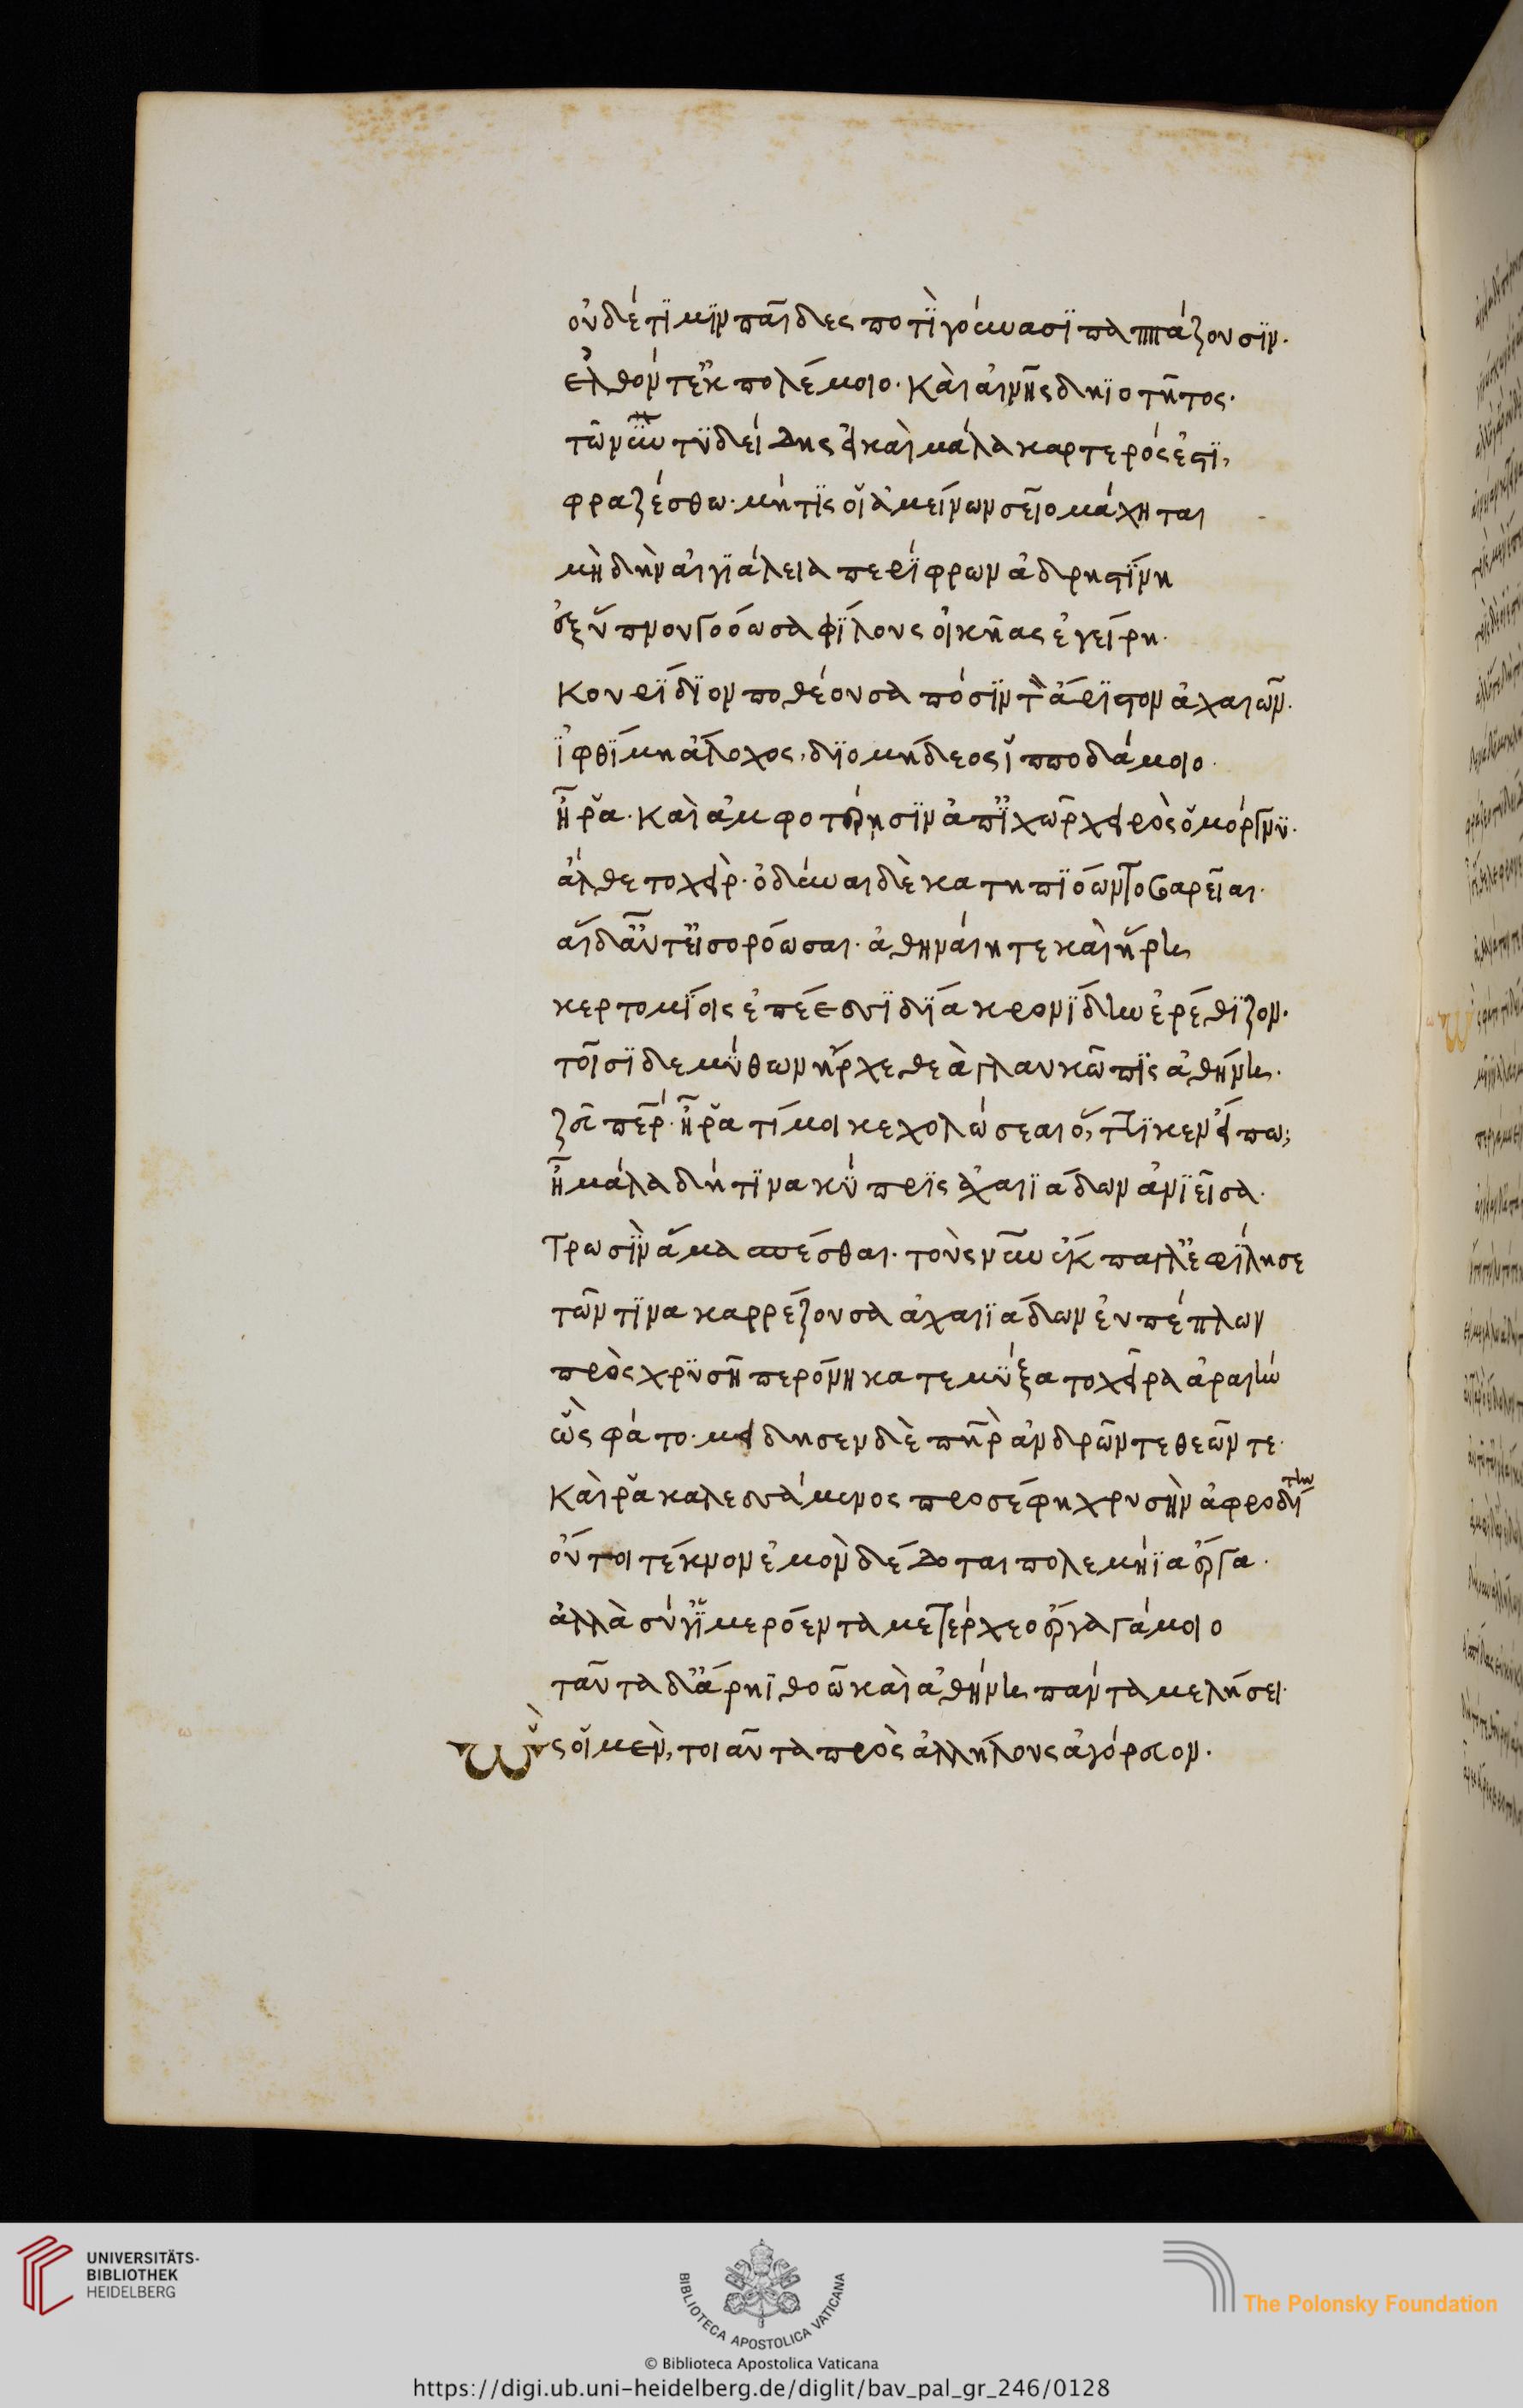 οὐδέ τί μιν παῖδες ποτὶ γούνασι παππάζουσιν.
ἐλθόντ' ἐκ πολέμοιο. καὶ αἰνῆς δηϊοτῆτος.
τῶ νῦν τυδείδης εἰ καὶ μάλα καρτερός ἐστι,
φραζέσθω. μή τίς οἱ ἀμείνων σεῖο μάχηται
μὴ δὴν αἰγιάλεια περίφρων ἀδρηστίνη
ἐξ ὕπνου γοόωσα φίλους οἰκῆας ἐγείρη.
κουρίδιον ποθέουσα πόσιν τὸν ἄριστον ἀχαιῶν.
ἰφθίμη ἄλοχος, διομήδεος ἱπποδάμοιο.
ἦ ῥα. καὶ ἀμφοτέρησιν ἀπ' ἰχῶρ χειρὸς ὀμόργνυ.
ἄλθετο χείρ. ὀδύναι δὲ κατηπιόωντο βαρεῖαι.
αἱ δ' αὖτ' εἰσορόωσαι. ἀθηναίη τε καὶ ἥρη
κερτομίοις ἐπέεσσι δία κρονίδην ἐρέθιζον.
τοῖσι δε μύθων ἦρχε θεὰ γλαυκῶπις ἀθήνη.
ζεῦ πάτερ. ἦ ῥά τί μοι κεχολώσεαι ὅ, ττι κεν εἴπω;
ἦ μάλα δή τινα κύπρις ἀχαιϊάδων ἀνιεῖσα.
τρωσὶν ἅμα σπέσθαι. τοὺς νῦν ἔκπαγλ' ἐφίλησε
τῶν τινα καρρέζουσα ἀχαιϊάδων εὐπέπλων
πρὸς χρυσῆ περόνη κατεμύξατο χεῖρα ἀραιήν
ὣς φάτο. μείδησεν δὲ πατὴρ ἀνδρῶν τε θεῶν τε.
καί ῥα καλεσσάμενος προσέφη χρυσὴν ἀφροδίτην
οὔ τοι τέκνον ἐμὸν δέδοται πολεμήϊα ἔργα.
ἀλλὰ σύ γ' ἱμερόεντα μετέρχεο ἔργα γάμοιο
ταῦτα δ' ἄρηϊ θοῶ καὶ ἀθήνη πάντα μελήσει.
Ὣς οἱ μὲν, τοιαῦτα πρὸς ἀλλήλους ἀγόρευον.
ω
UNIVERSITÄTS-
BIBLIOTHEK
HEIDELBERG
BIBLIOTECA APOSTOLICA VATICANA
The Polonsky Foundation
© Biblioteca Apostolica Vaticana
https://digi.ub.uni-heidelberg.de/diglit/bav_pal_gr_246/0128